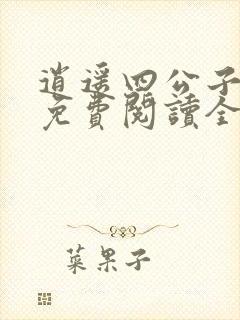 逍遥四公子
免費閱讀全
菜果子